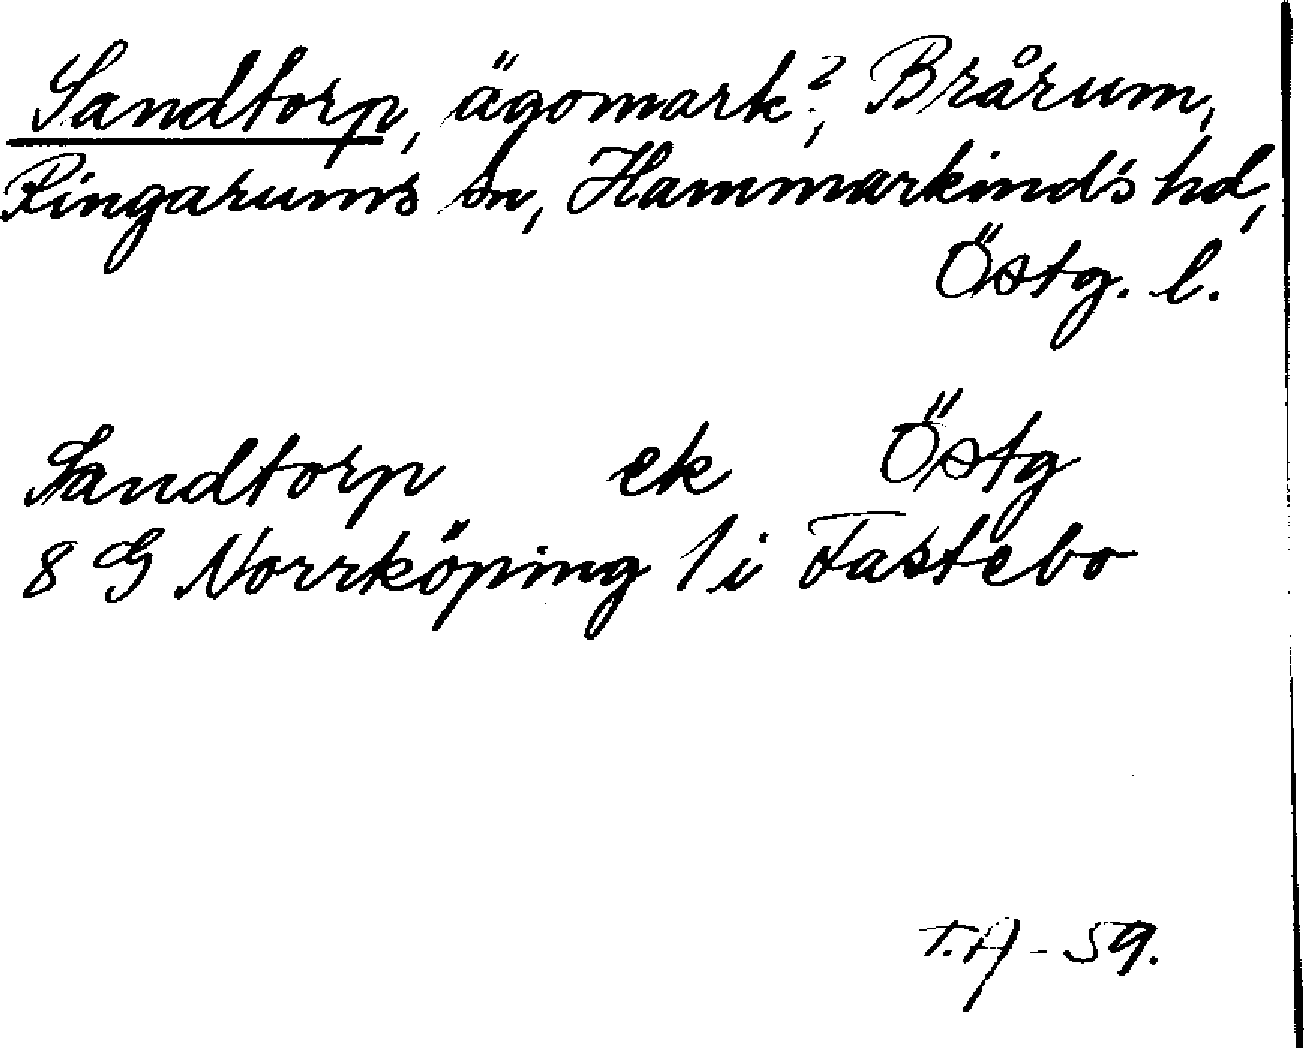 Sandtorp, ägomark?, Brårum,
Ringarums sn, Hammarkinds hd,
Östg. l.
Sandtorp ek Östg
8 G Norrköping 1 i Fastebo
T.A - 59.